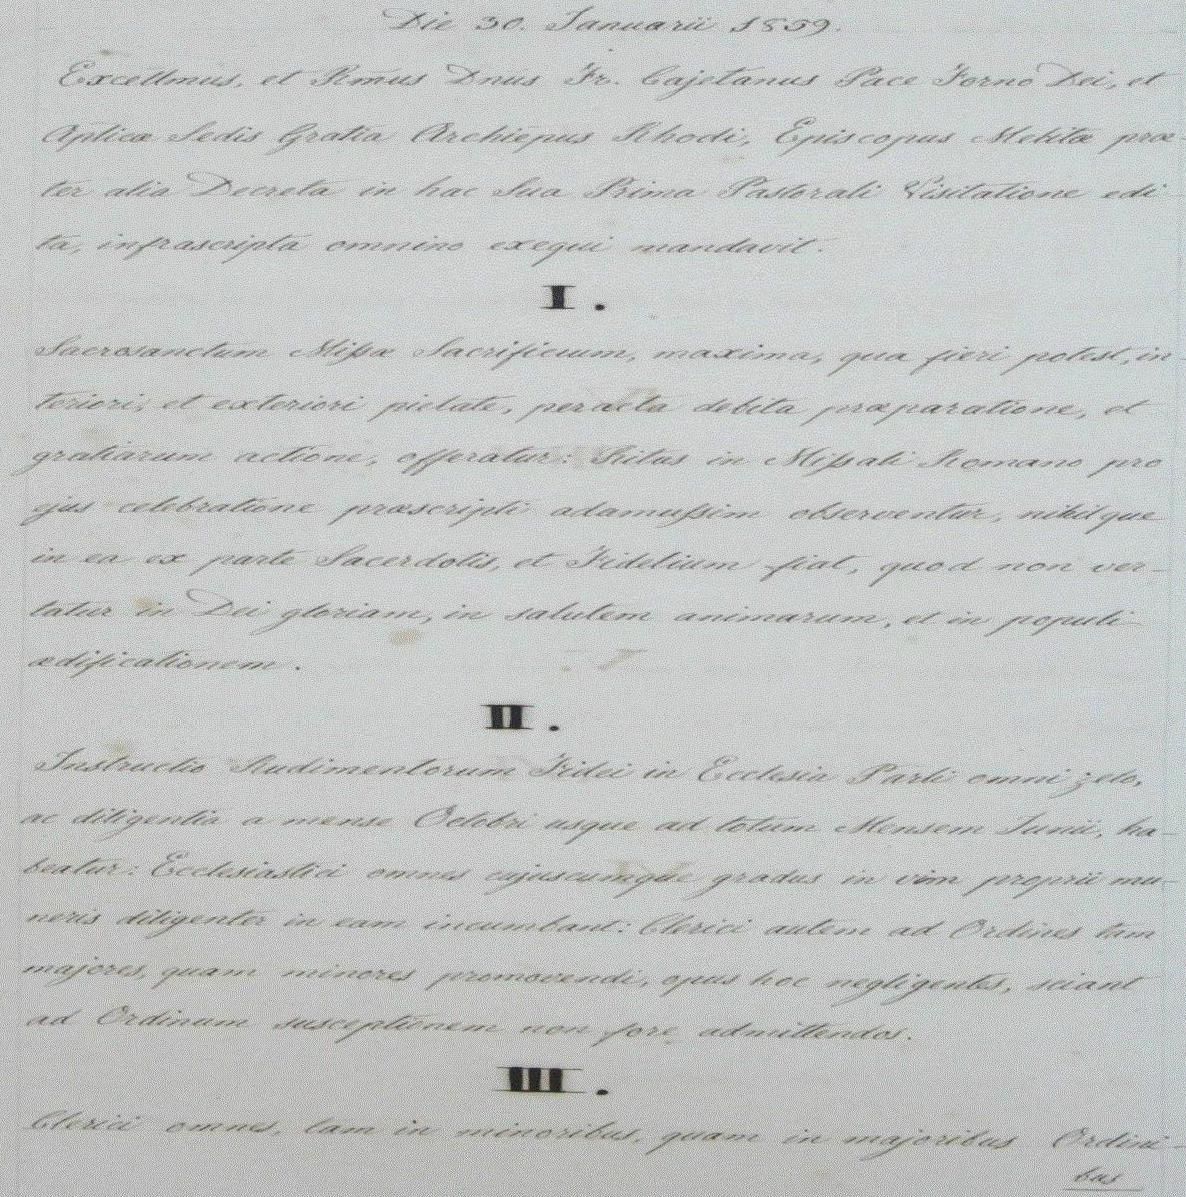 Die 30. Januarii 1859.
Excellmus, et Rmus Dnus Fr. Cajetanus Pace Forno Dei, et
Aplicæ Sedis Gratia Archiepus Rhodi, Episcopus Melitæ præ-
ter alia Decreta in hac Sua Prima Pastorali Visitatione edi-
ta, infrascripta omnino exequi mandavit.
I.
Sacrosanctum Missæ Sacrificium, maxima, qua fieri potest, in-
teriori, et exteriori pietate, peracta debita præparatione, et
gratiarum actione, offeratur: Ritus in Missali Romano pro
ejus celebratione præscripti adamussim observentur, nihilque
in ea ex parte Sacerdotis, et Fidelium fiat, quod non ver-
tatur in Dei gloriam, in salutem animarum, et in populi
ædificationem.
II.
Instructio Rudimentorum Fidei in Ecclesia Parli omni zelo,
ac diligentia a mense Octobri usque ad totum Mensem Junii, ha-
beatur: Ecclesiastici omnes cujuscumque gradus in vim proprii mu-
neris diligenter in eam incumbant: Clerici autem ad Ordines tam
majores, quam minores promovendi, opus hoc negligentes, sciant
ad Ordinum susceptionem non fore admittendos.
III.
Clerici omnes, tam in minoribus, quam in majoribus Ordini-
bus